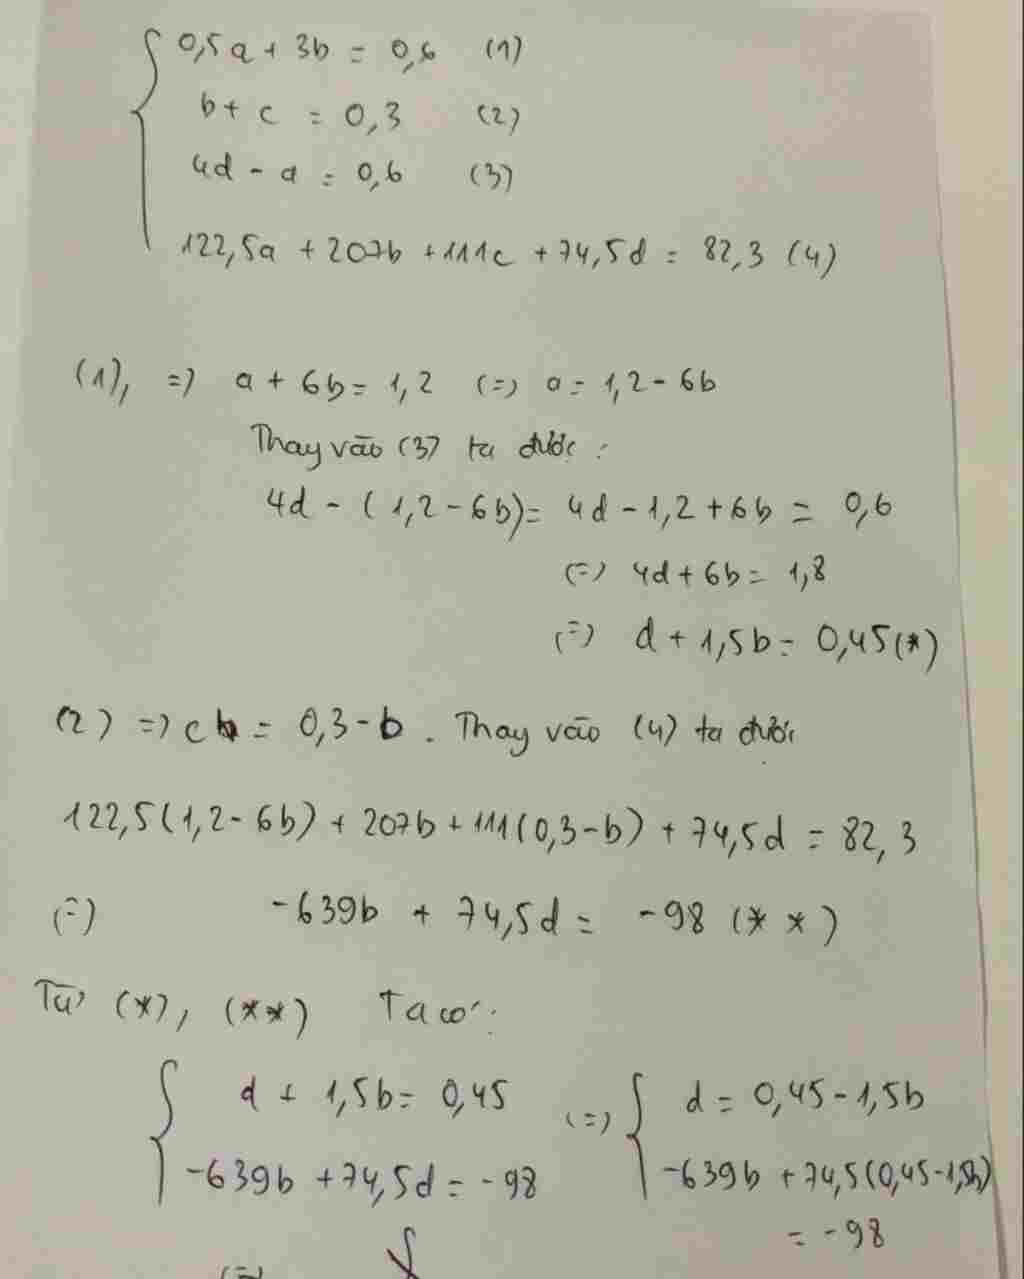 0,5a + 3b = 0,6 (1)
b + c = 0,3 (2)
4d - a = 0,6 (3)
122,5a + 207b + 111c + 74,5d = 82,3 (4)
(1), => a + 6b = 1,2 (=) a = 1,2 - 6b
Thay vào (3) ta được :
4d - (1,2 - 6b) = 4d - 1,2 + 6b = 0,6
(=) 4d + 6b = 1,8
(=) d + 1,5b = 0,45 (*)
(2) => c = 0,3 - b . Thay vào (4) ta được
122,5(1,2 - 6b) + 207b + 111(0,3 - b) + 74,5d = 82,3
(=) -639b + 74,5d = -98 (* *)
Từ (*), (**) Ta có :
d + 1,5b = 0,45 (=) d = 0,45 - 1,5b
-639b + 74,5d = -98 -639b + 74,5(0,45 - 1,5b)
= -98
(=)